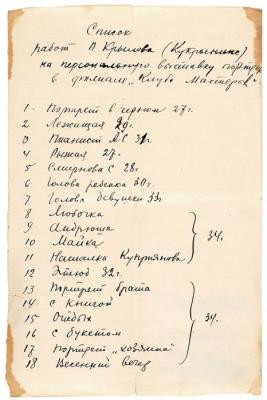 Список
работ П Крылова (Кукрыниксы)
на персональную выставку портрета
в филиале „Клуба Мастеров"
1 - Портрет в черном 27 г.
2 Лежащая 29 г.
3 Пианист АС 31 г.
4 Рыжая 27 г.
5 Смирнова С 28 г.
6 Голова ребенка 30 г.
7 Голова девушки 33
8 Любочка
9 Андрюша
10 Майка
11 Наталка Куприянова
34 г.
12 Этюд 32 г.
13 Портрет брата
14 с книгой
15 Отдых
16 с букетом
17 Портрет „хозяина"
18 Весенний вечер
34 г.